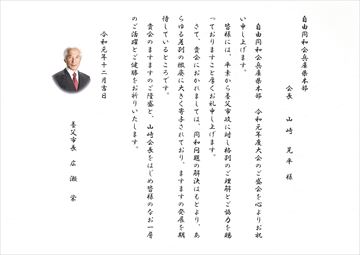 自由同和会兵庫県本部
会長　山﨑晃平様
自由同和会兵庫県本部　令和元年度大会のご盛会を心よりお祝
い申し上げます。
皆様には、平素から養父市政に対し格別のご理解とご協力を賜
っておりますこと厚くお礼申し上げます。
さて、貴会におかれましては、同和問題の解決はもとより、あ
らゆる差別の撤廃に大きく寄与されており、ますますの発展を期
待しているところです。
貴会のますますのご隆盛と、山﨑会長をはじめ皆様のなお一層
のご活躍とご健勝をお祈りいたします。
令和元年十二月吉日
養父市長　広瀬　栄